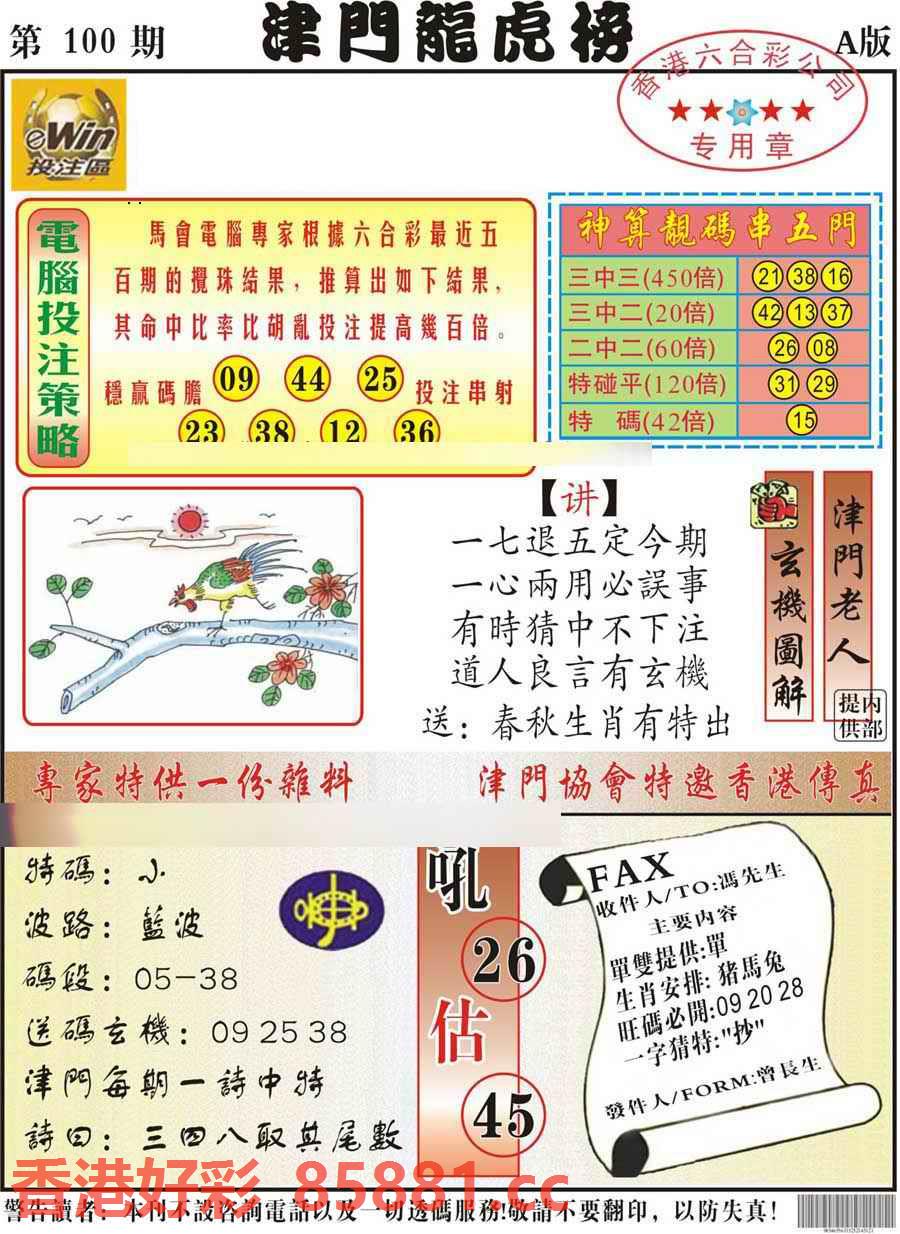 第 100 期
津門龍虎榜
A版
香港六合彩公司
专用章
eWin
投注區
電腦投注策略
馬會電腦專家根據六合彩最近五
百期的攪珠結果，推算出如下結果，
其命中比率比胡亂投注提高幾百倍。
穩贏碼膽 09 44 25 投注串射
23 38 12 36
神算靚碼串五門
三中三(450倍) 21 38 16
三中二(20倍) 42 13 37
二中二(60倍) 26 08
特碰平(120倍) 31 29
特 碼(42倍) 15
【讲】
一七退五定今期
一心兩用必誤事
有時猜中不下注
道人良言有玄機
送：春秋生肖有特出
玄機圖解
津門老人
内部提供
專家特供一份雜料
津門協會特邀香港傳真
特碼：小
波路：藍波
碼段：05-38
送碼玄機：09 25 38
津門每期一詩中特
詩曰：三四八取其尾數
吼
26
估
45
FAX
收件人/TO:馮先生
主要内容
單雙提供:單
生肖安排:猪馬兔
旺碼必開:09 20 28
一字猜特:"抄"
發件人/FORM:曾長生
香港好彩 85881.cc
警告讀者：本刊不設咨詢電話以及一切透碼服務!敬請不要翻印，以防失真!